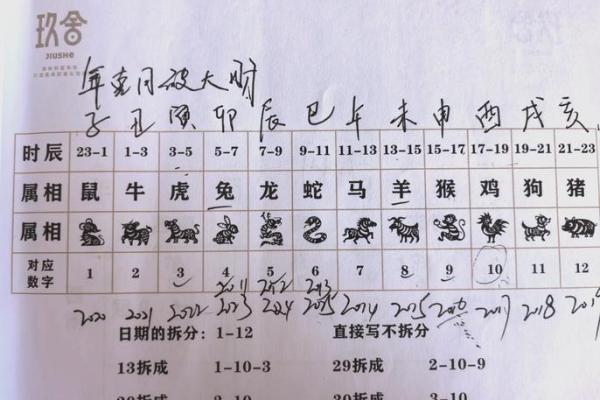 玖舍
JIUSHE
年克月破大财
子 丑 寅 卯 辰 巳 午 未 申 酉 戌 亥
时辰 23-1 1-3 3-5 5-7 7-9 9-11 11-13 13-15 15-17 17-19 19-21 21-23
属相 鼠 牛 虎 兔 龙 蛇 马 羊 猴 鸡 狗 猪
属相
对应数字 1 2 3 4 5 6 7 8 9 10 11 12
2011 2012 2013
2020 2021 2022 2023 2024 2025 2014 2015 2016 2017 2018 2019
日期的拆分: 1-12 直接写不拆分
13拆成 1-10-3 29拆成 2-10-9
30拆成 3-10